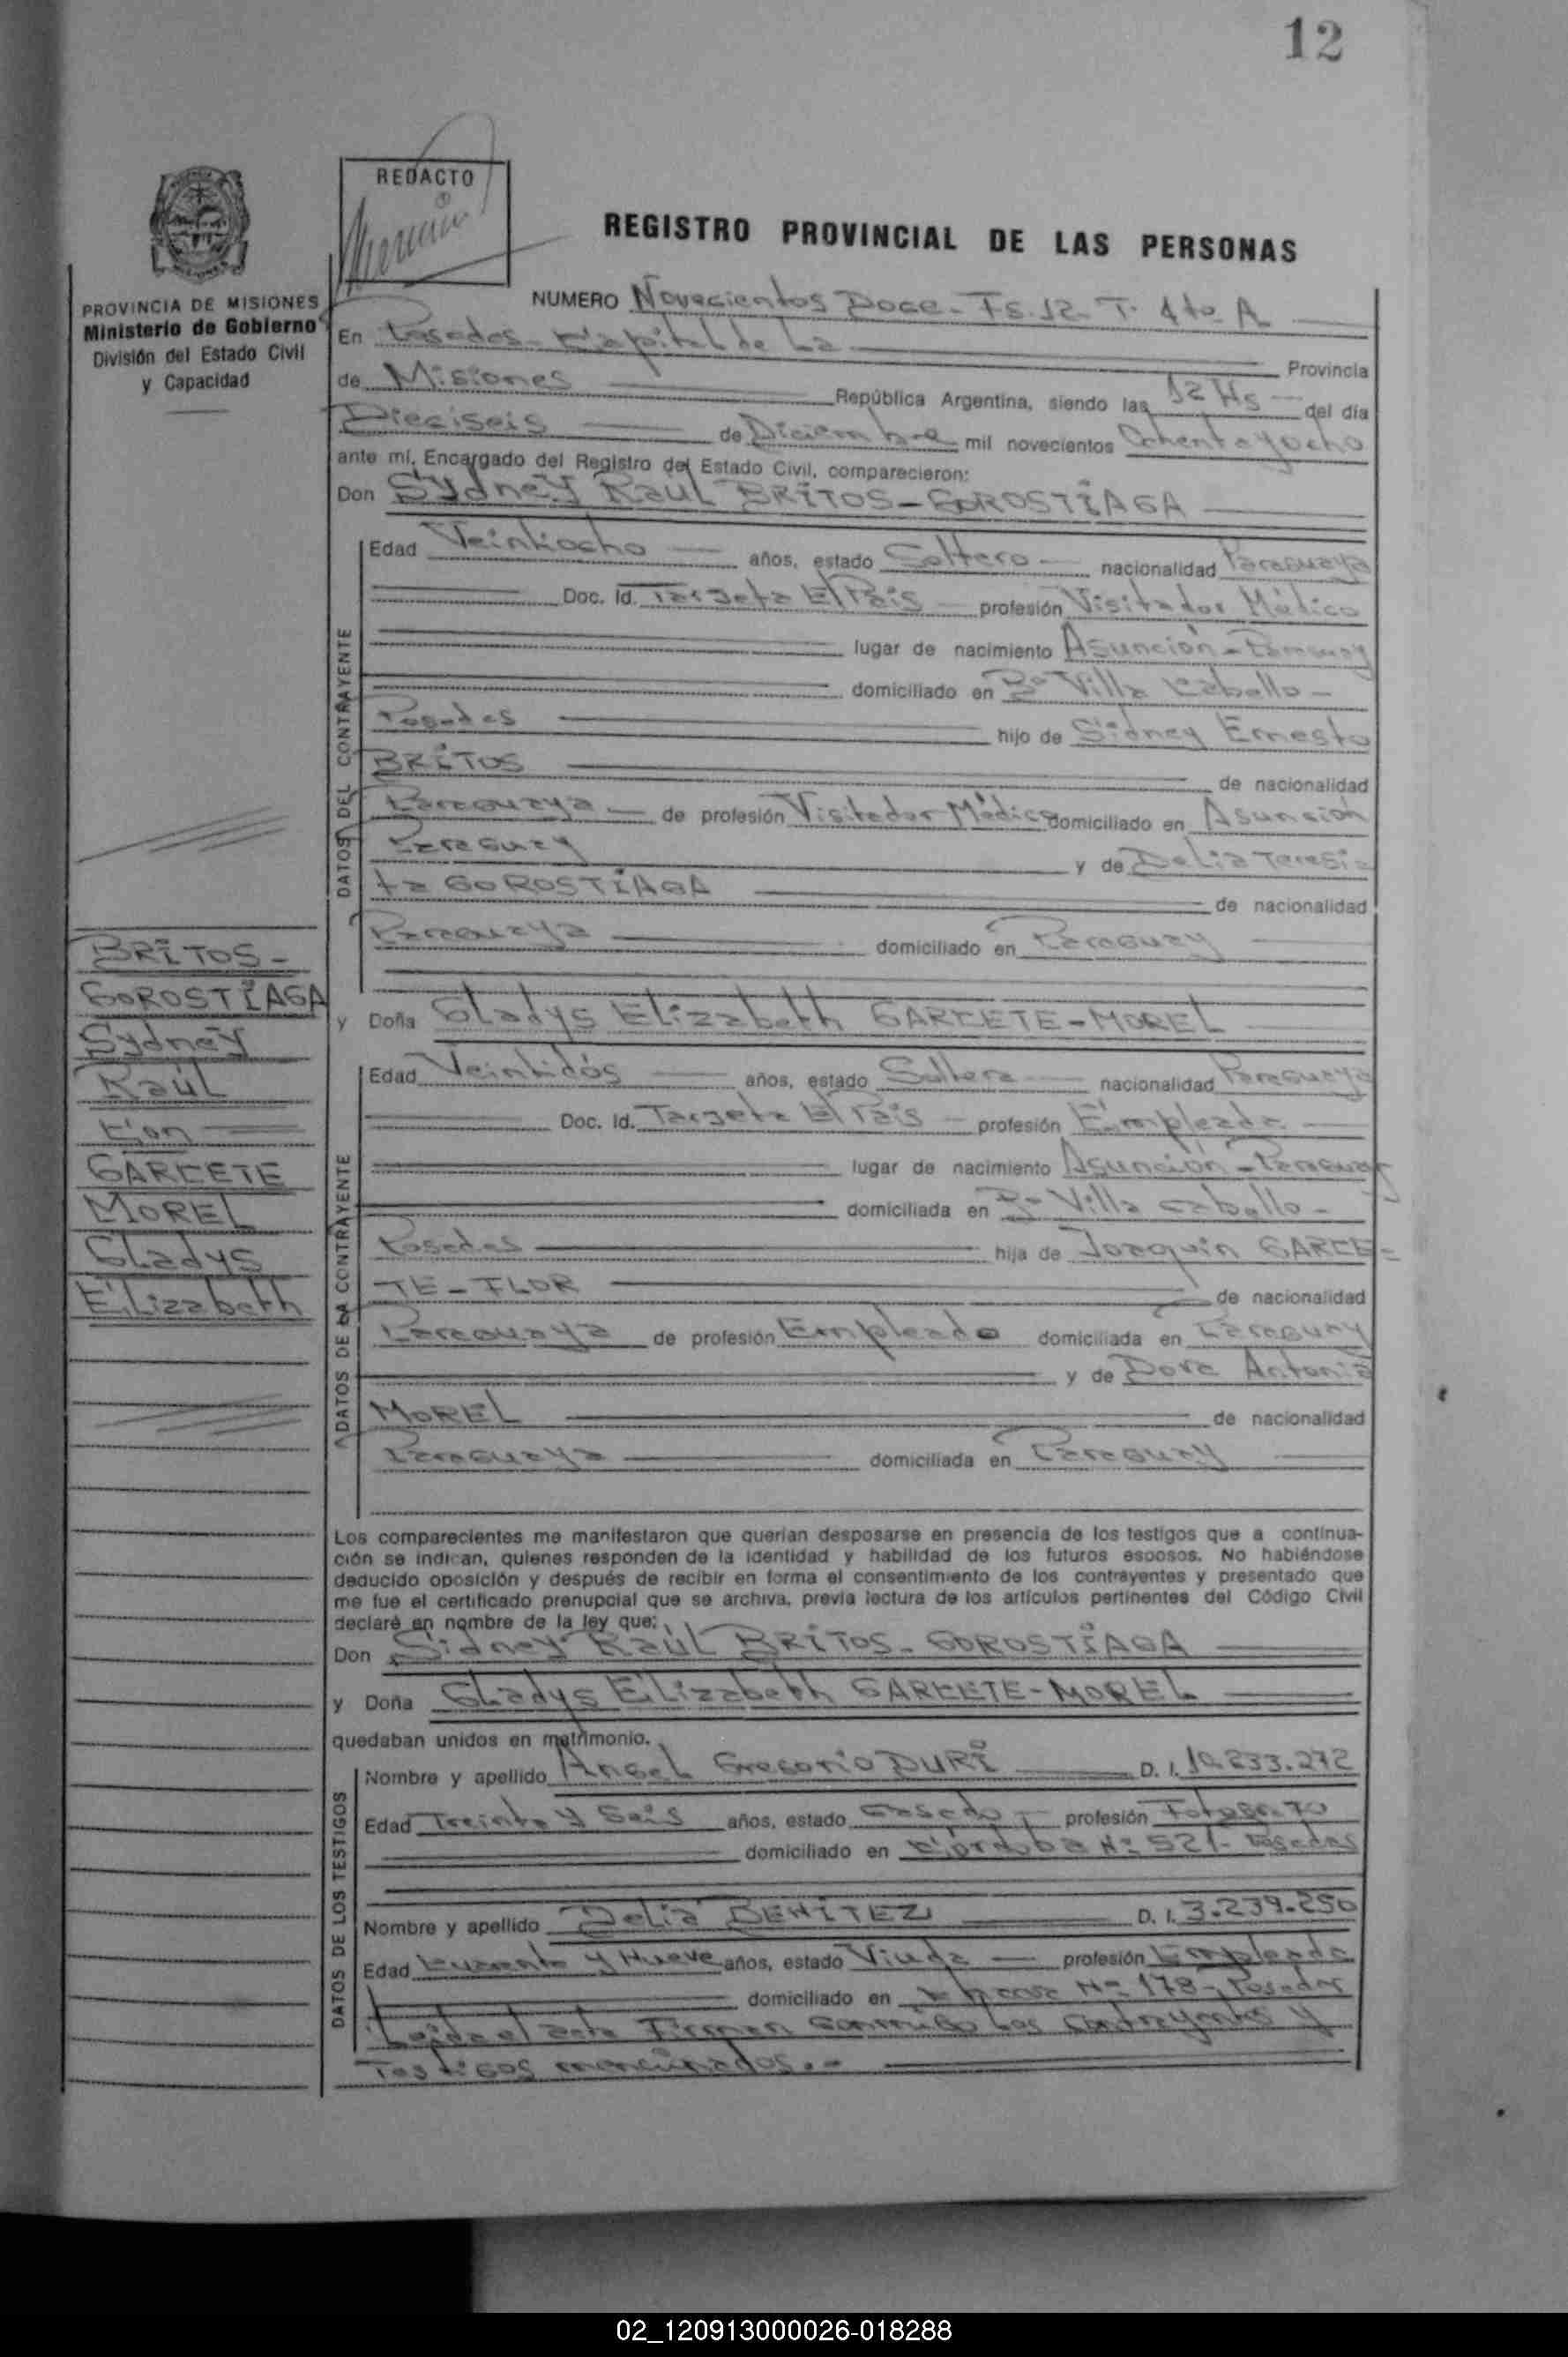 12
REDACTO
REGISTRO PROVINCIAL DE LAS PERSONAS
PROVINCIA DE MISIONES
Ministerio de Gobierno
División del Estado Civil
y Capacidad
NUMERO Novecientos Doce - Fs. 12 - T. 4to A
En Posadas - Capital de La Provincia
de Misiones República Argentina, siendo las 12 Hs del día
Dieciseis de Diciembre mil novecientos Ochenta y ocho
ante mí, Encargado del Registro del Estado Civil, comparecieron:
Don Sydney Raúl BRITOS - GOROSTIAGA
DATOS DEL CONTRAYENTE
Edad Veintiocho años, estado Soltero nacionalidad Paraguaya
Doc. Id. Tarjeta El País profesión Visitador Médico
lugar de nacimiento Asunción - Paraguay
domiciliado en Bº Villa Cabello -
Posadas hijo de Sidney Ernesto
BRITOS de nacionalidad
Paraguaya de profesión Visitador Médico domiciliado en Asunción
Paraguay y de Delia Teresi=
ta GOROSTIAGA de nacionalidad
Paraguaya domiciliado en Paraguay
BRITOS -
GOROSTIAGA
Sydney
Raúl
Con
GARCETE
MOREL
Gladys
Elizabeth
y Doña Gladys Elizabeth GARCETE - MOREL
DATOS DE LA CONTRAYENTE
Edad Veintidós años, estado Soltera nacionalidad Paraguaya
Doc. Id. Tarjeta El País profesión Empleada
lugar de nacimiento Asunción - Paraguay
domiciliada en Bº Villa Cabello -
Posadas hija de Joaquín GARCE=
TE - FLOR de nacionalidad
Paraguaya de profesión Empleado domiciliada en Paraguay
y de Dora Antonia
MOREL de nacionalidad
Paraguaya domiciliada en Paraguay
Los comparecientes me manifestaron que querían desposarse en presencia de los testigos que a continua-
ción se indican, quienes responden de la identidad y habilidad de los futuros esposos. No habiéndose
deducido oposición y después de recibir en forma el consentimiento de los contrayentes y presentado que
me fue el certificado prenupcial que se archiva, previa lectura de los artículos pertinentes del Código Civil
declaré en nombre de la ley que:
Don Sidney Raúl BRITOS - GOROSTIAGA
y Doña Gladys Elizabeth GARCETE - MOREL
quedaban unidos en matrimonio.
DATOS DE LOS TESTIGOS
Nombre y apellido Angel Gregorio DURI D. I. 10.233.272
Edad Treinta y Seis años, estado Casado profesión Fotógrafo
domiciliado en Córdoba Nº 521 - Posadas
Nombre y apellido Delia BENITEZ D. I. 3.239.250
Edad Cuarenta y Nueve años, estado Viuda profesión Empleada
domiciliado en Nº 178 - Posadas
Leída el acta Firman conmigo Los contrayentes y
Testigos mencionados. -
02_120913000026-018288